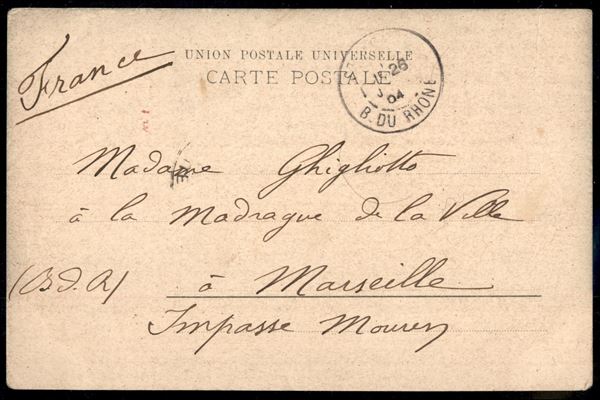 France
UNION POSTALE UNIVERSELLE
CARTE POSTALE
26
04
B. DU RHONE
Madame Ghigliotto
à la Madrague de la Ville
(B. d. R)
à Marseille
Impasse Mouren